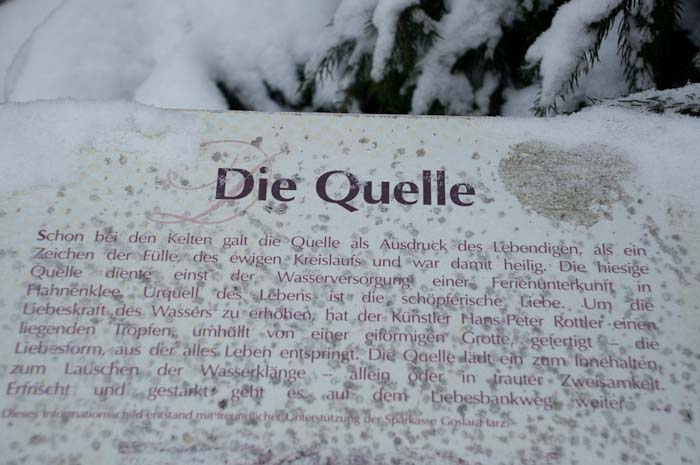 Die Quelle
Schon bei den Kelten galt die Quelle als Ausdruck des Lebendigen, als ein
Zeichen der Fülle, des ewigen Kreislaufs und war damit heilig. Die hiesige
Quelle diente einst der Wasserversorgung einer Ferienunterkunft in
Hahnenklee. Urquell des Lebens ist die schöpferische Liebe. Um die
Liebeskraft des Wassers zu erhöhen, hat der Künstler Hans-Peter Rottler einen
liegenden Tropfen, umhüllt von einer eiförmigen Grotte, gefertigt – die
Liebesform, aus der alles Leben entspringt. Die Quelle lädt ein zum Innehalten,
zum Lauschen der Wasserklänge – allein oder in trauter Zweisamkeit.
Erfrischt und gestärkt geht es auf dem Liebesbankweg weiter ...
Dieses Informationsschild entstand mit freundlicher Unterstützung der Sparkasse Goslar/Harz